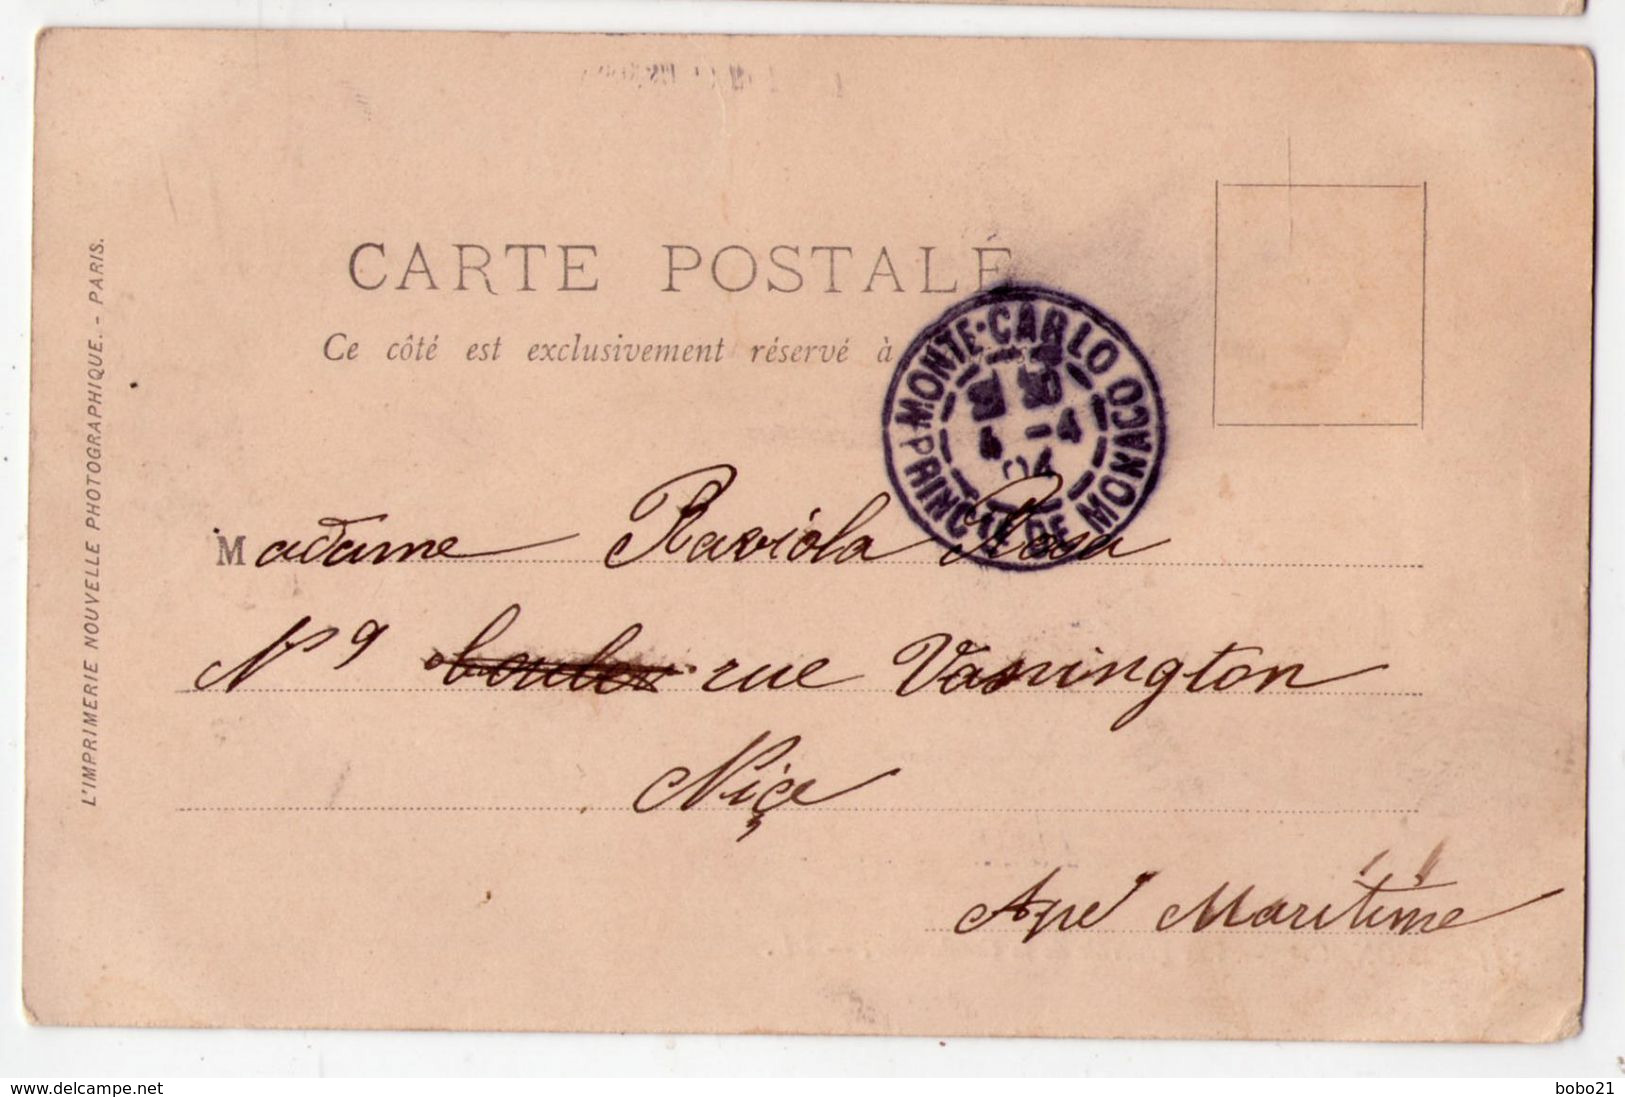 CARTE POSTALE
Ce côté est exclusivement réservé à
MONTE-CARLO
PRINCTE DE MONACO
4 -4
04
Madame Raviola Rosa
N° 9 rue Vasington
Niçe
Alpé Maritime
L'IMPRIMERIE NOUVELLE PHOTOGRAPHIQUE. - PARIS.
www.delcampe.net
bobo21